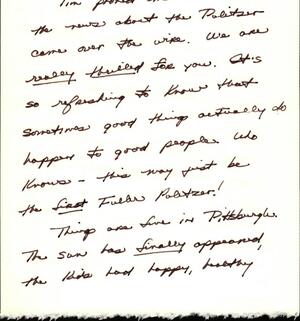 Tim phoned
the news about the Pulitzer
came over the wire. We are
really thrilled for you. It's
so refreshing to know that
sometimes good things actually do
happen to good people. Who
knows - this may just be
the first Fuller Pulitzer!
Things are fine in Pittsburgh.
The sun has finally appeared,
the kids had happy, healthy